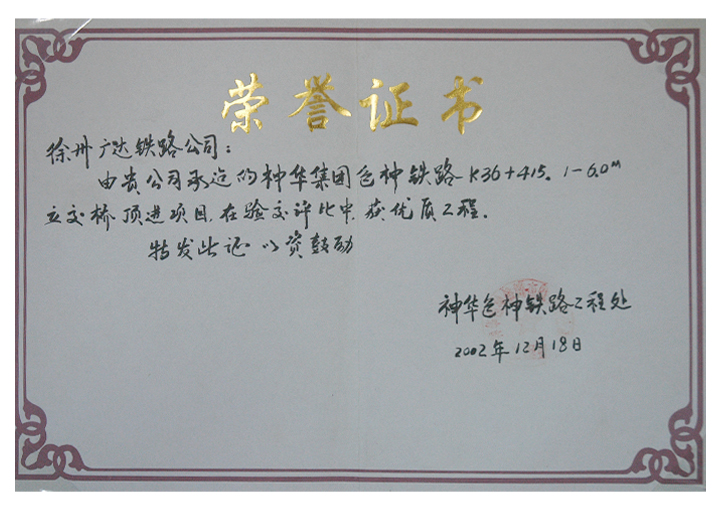 荣誉证书
徐州广达铁路公司：
由贵公司承造的神华集团包神铁路K36+415。1-6.0m
立交桥顶进项目，在验交评比中，获优质工程。
特发此证 以资鼓励
神华包神铁路工程处
2002年12月18日